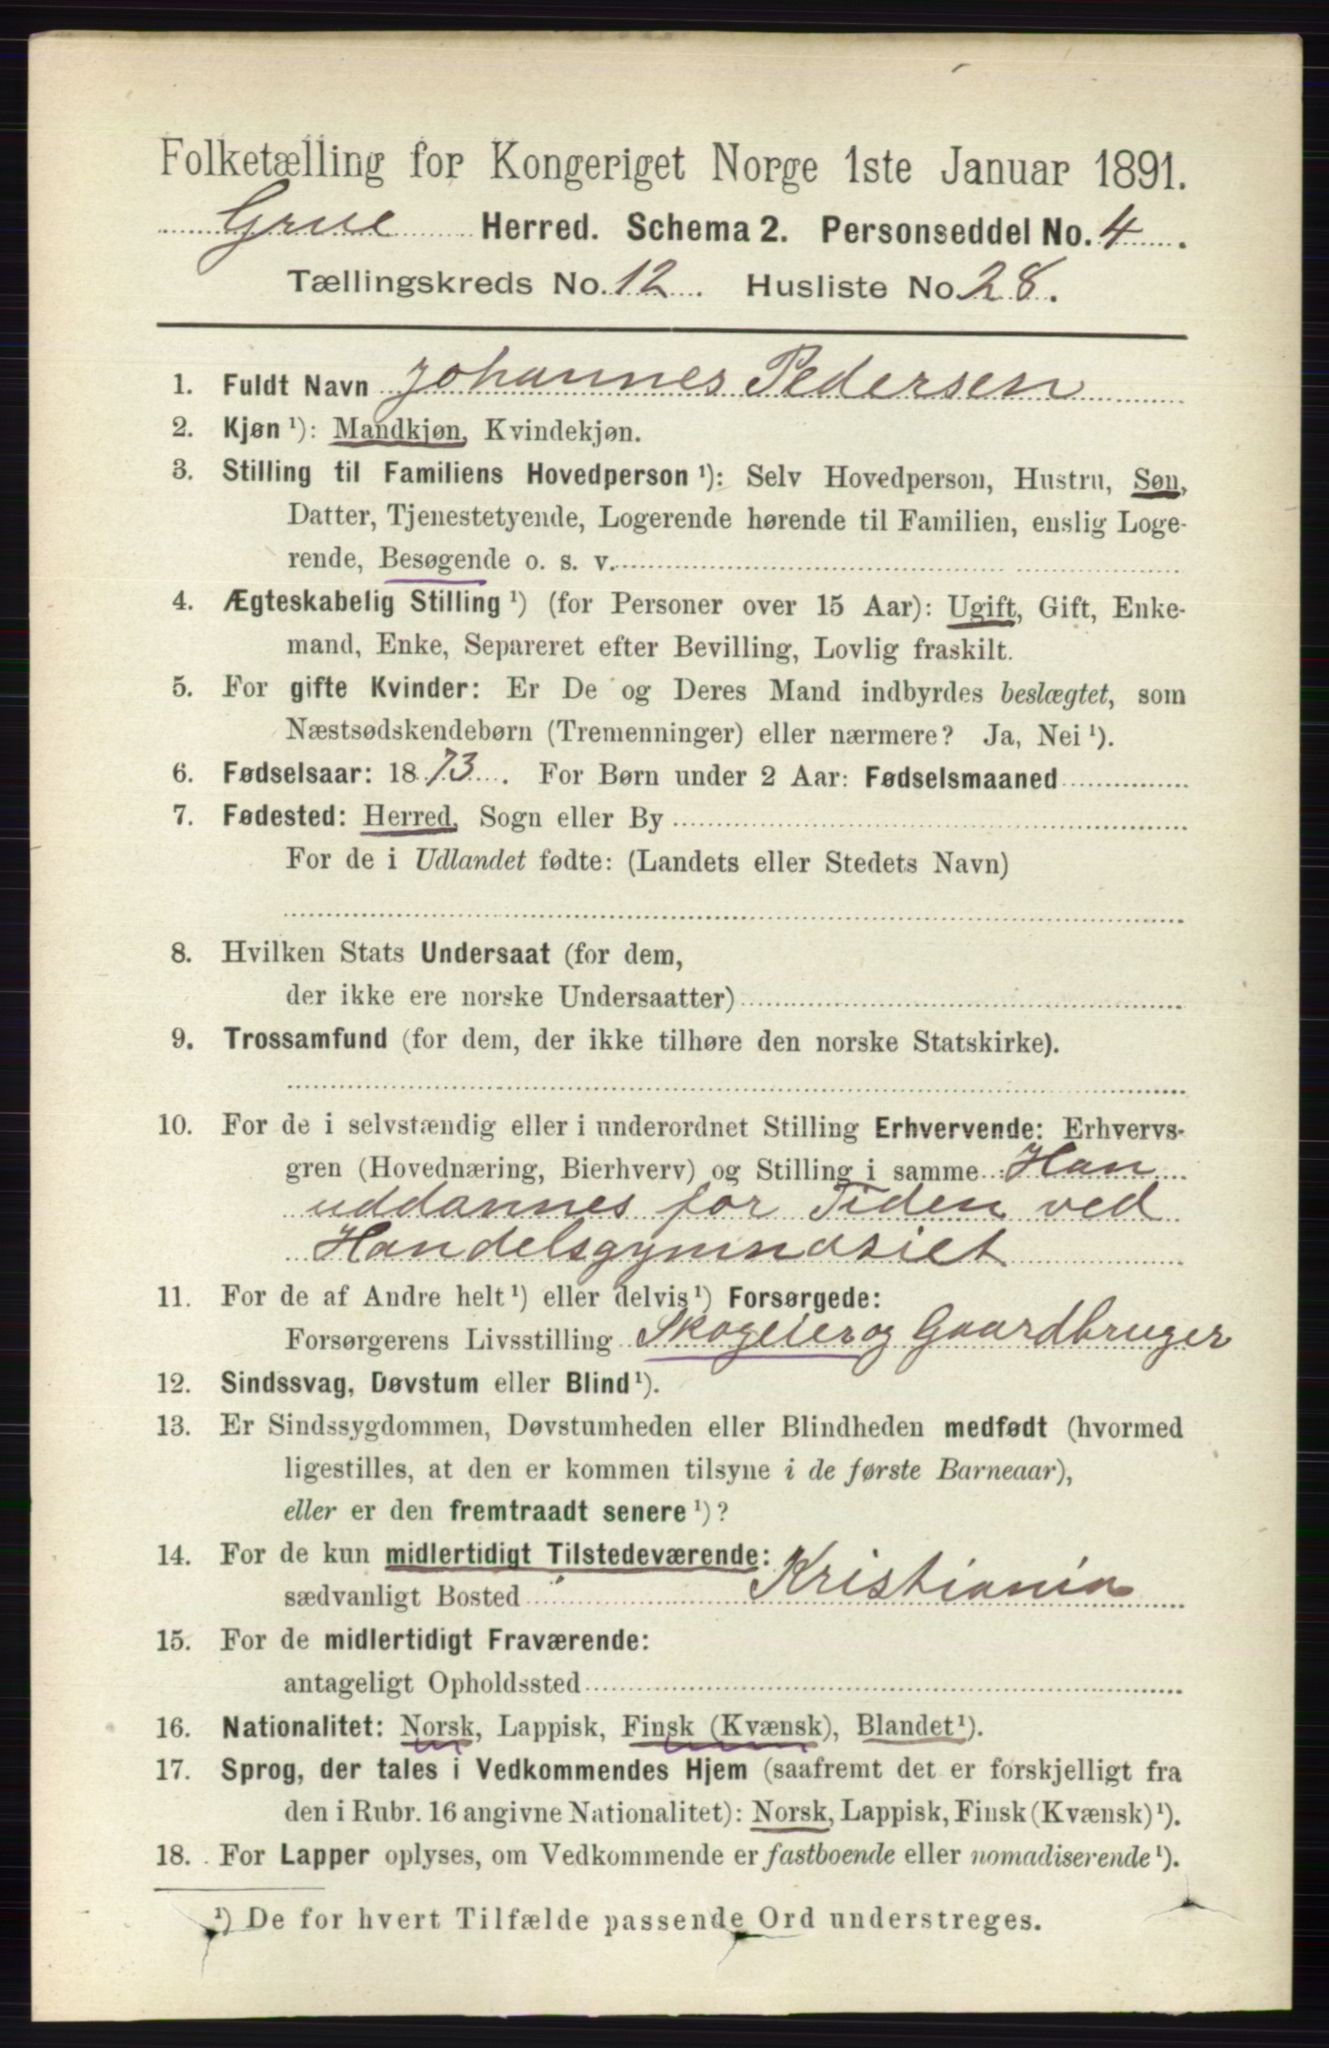 Folketælling for Kongeriget Norge 1ste Januar 1891.
Grue Herred. Schema 2. Personseddel No. 4.
Tællingskreds No. 12. Husliste No 28.
1. Fuldt Navn Johannes Pedersen
2. Kjøn ¹): Mandkjøn, Kvindekjøn.
3. Stilling til Familiens Hovedperson ¹): Selv Hovedperson, Hustru, Søn,
Datter, Tjenestetyende, Logerende hørende til Familien, enslig Loge-
rende, Besøgende o. s. v.
4. Ægteskabelig Stilling ¹) (for Personer over 15 Aar): Ugift, Gift, Enke-
mand, Enke, Separeret efter Bevilling, Lovlig fraskilt.
5. For gifte Kvinder: Er De og Deres Mand indbyrdes beslægtet, som
Næstsødskendebørn (Tremenninger) eller nærmere? Ja, Nei ¹).
6. Fødselsaar: 1873. For Børn under 2 Aar: Fødselsmaaned
7. Fødested: Herred, Sogn eller By
For de i Udlandet fødte: (Landets eller Stedets Navn)
8. Hvilken Stats Undersaat (for dem,
der ikke ere norske Undersaatter)
9. Trossamfund (for dem, der ikke tilhøre den norske Statskirke).
10. For de i selvstændig eller i underordnet Stilling Erhvervende: Erhvervs-
gren (Hovednæring, Bierhverv) og Stilling i samme Han
uddannes for Tiden ved
Handelsgymnasiet
11. For de af Andre helt ¹) eller delvis ¹) Forsørgede:
Forsørgerens Livsstilling Skogeier og Gaardbruger
12. Sindssvag, Døvstum eller Blind ¹).
13. Er Sindssygdommen, Døvstumheden eller Blindheden medfødt (hvormed
ligestilles, at den er kommen tilsyne i de første Barneaar),
eller er den fremtraadt senere ¹)?
14. For de kun midlertidigt Tilstedeværende:
sædvanligt Bosted Kristiania
15. For de midlertidigt Fraværende:
antageligt Opholdssted
16. Nationalitet: Norsk, Lappisk, Finsk (Kvænsk), Blandet ¹).
17. Sprog, der tales i Vedkommendes Hjem (saafremt det er forskjelligt fra
den i Rubr. 16 angivne Nationalitet): Norsk, Lappisk, Finsk (Kvænsk) ¹).
18. For Lapper oplyses, om Vedkommende er fastboende eller nomadiserende ¹).
¹) De for hvert Tilfælde passende Ord understreges.